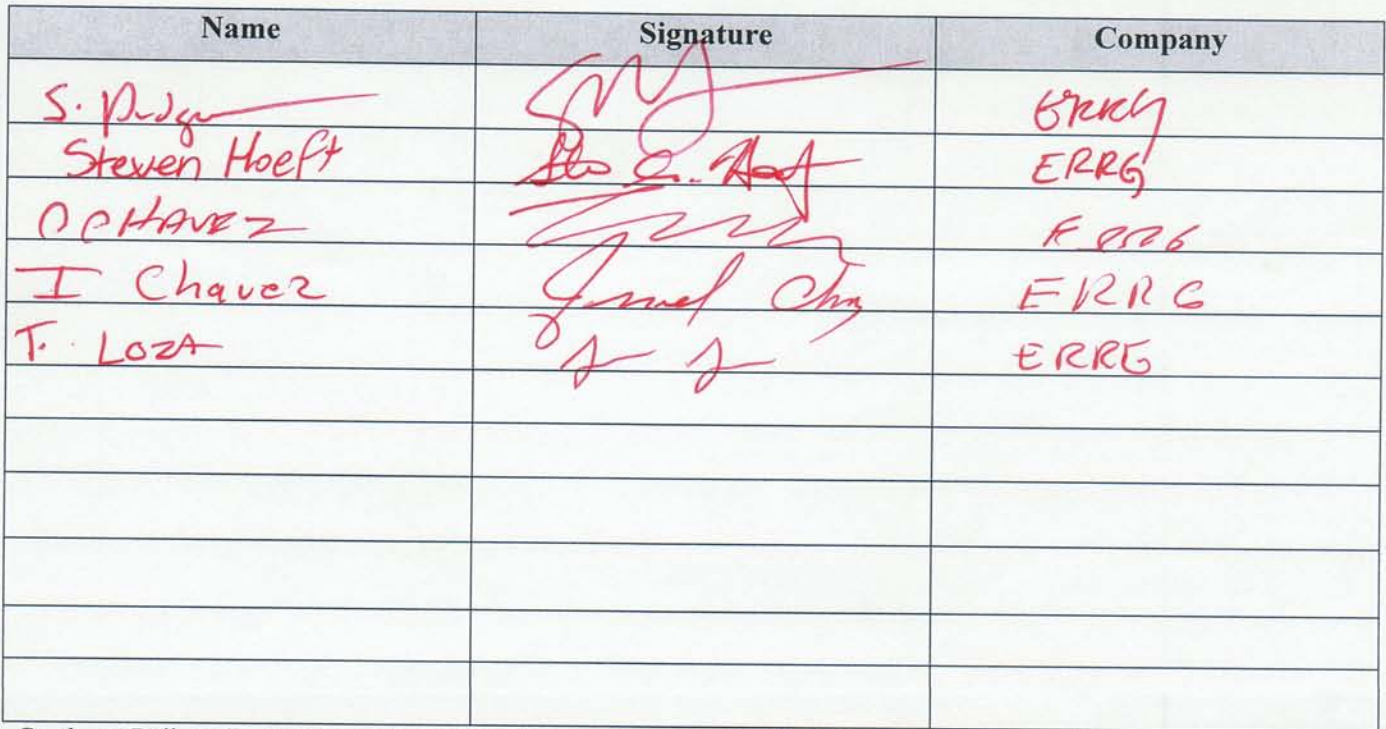 Name Signature Company
S. ERRG
Steven Hoeft ERRG
O CHAVEZ ERRG
I Chavez Ismael Chz ERRG
T. LOZA ERRG